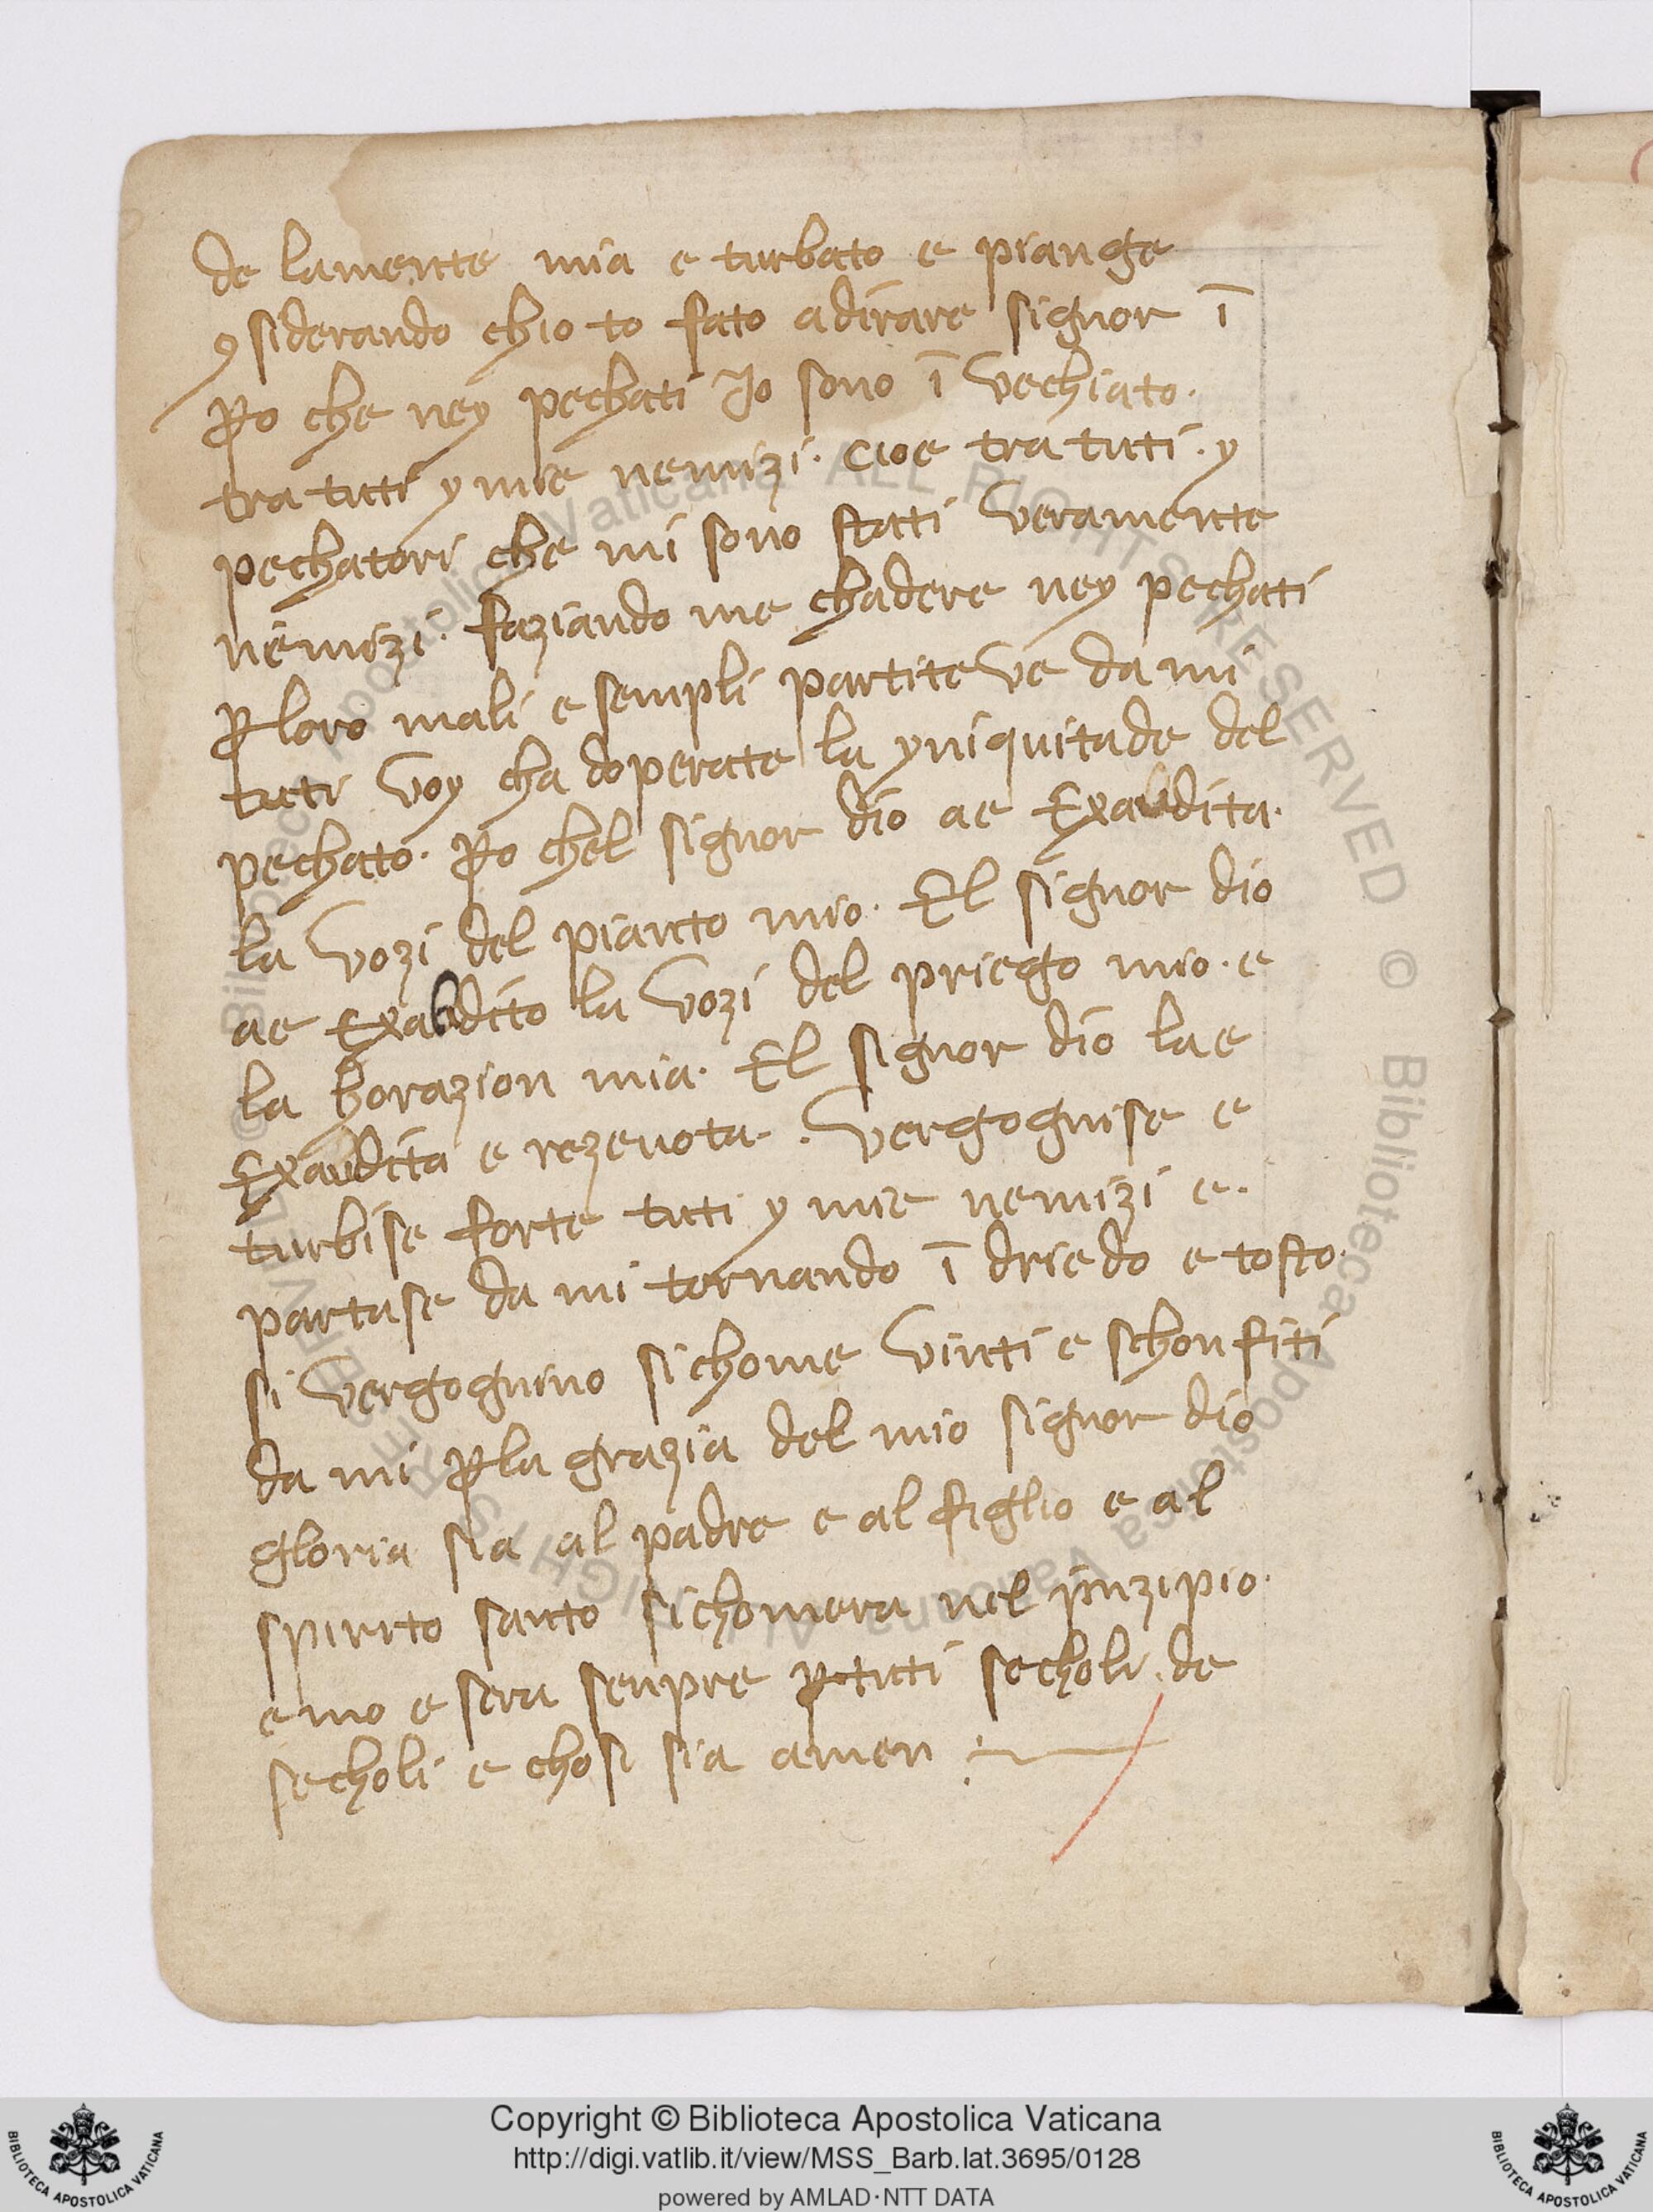 de lamente mia e turbato e piange
ꝯsiderando chio to fato adirare signor ī
ꝑo che ney pechati Jo sono ī vechiato.
tra tuti y mie nemizi. cioe tra tuti. y
pechatori che mi sono stati veramente
nemizi. faziando me chadere ney pechati
ꝑ loro mali esempli partite ve da mi
tuti voy cha doperate la yniquitade del
pechato. ꝑo chel signor dio ae Exaudita.
la vozi del pianto mio. El signor dio
ae Exaudito la vozi del priego mio. e
la horazion mia. El signor dio lae
Exaudita e rezeuota. . vergognise e
turbise forte tuti y mie nemizi e.
partase da mi tornando ī driedo e tosto.
si vergognino sichome vinti e schonfiti
da mi ꝑ la grazia del mio signor dio
gloria sia al padre e al figlio e al
spirito santo sichomera nel pinzipio.
e mo e sera senpre ꝑ tuti secholi. de
secholi e chosi sia amen
Copyright © Biblioteca Apostolica Vaticana
http://digi.vatlib.it/view/MSS_Barb.lat.3695/0128
powered by AMLAD·NTT DATA
BIBLIOTECA APOSTOLICA VATICANA
BIBLIOTECA APOSTOLICA VATICANA
Biblioteca Apostolica Vaticana ALL RIGHTS RESERVED © Biblioteca Apostolica Vaticana ALL RIGHTS RESERVED ©